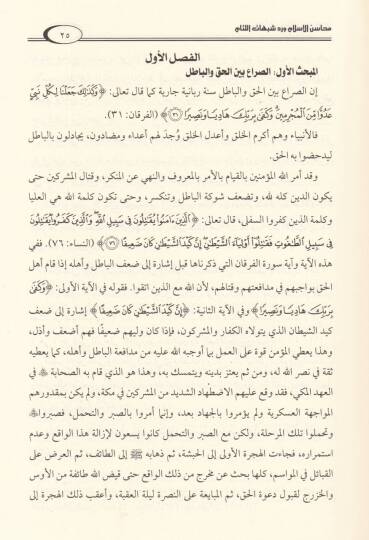 محاسن الإسلام ورد شبهات اللئام
٢٥
الفصل الأول
المبحث الأول: الصراع بين الحق والباطل
إن الصراع بين الحق والباطل سنة ربانية جارية كما قال تعالى: ﴿وَكَذَلِكَ جَعَلْنَا لِكُلِّ نَبِيٍّ
عَدُوًّا مِّنَ الْمُجْرِمِينَ وَكَفَى بِرَبِّكَ هَادِيًا وَنَصِيرًا ﴿٣١﴾﴾ (الفرقان: ٣١).
فالأنبياء وهم أكرم الخلق وأعدل الخلق وُجدَ لهم أعداء ومضادون، يجادلون بالباطل
ليدحضوا به الحق.
وقد أمر الله المؤمنين بالقيام بالأمر بالمعروف والنهي عن المنكر، وقتال المشركين حتى
يكون الدين كله لله، وتضعف شوكة الباطل وتنكسر، وحتى تكون كلمة الله هي العليا
وكلمة الذين كفروا السفلى، قال تعالى: ﴿الَّذِينَ ءَامَنُوا يُقَاتِلُونَ فِي سَبِيلِ اللَّهِ وَالَّذِينَ كَفَرُوا يُقَاتِلُونَ
فِي سَبِيلِ الطَّاغُوتِ فَقَاتِلُوا أَوْلِيَاءَ الشَّيْطَانِ إِنَّ كَيْدَ الشَّيْطَانِ كَانَ ضَعِيفًا ﴿٧٦﴾﴾ (النساء: ٧٦). ففي
هذه الآية وآية سورة الفرقان التي ذكرناها قبل إشارة إلى ضعف الباطل وأهله إذا قام أهل
الحق بواجبهم في مدافعتهم وقتالهم، لأن الله مع الذين اتقوا. فقوله في الآية الأولى: ﴿وَكَفَى
بِرَبِّكَ هَادِيًا وَنَصِيرًا﴾ وفي الآية الثانية: ﴿إِنَّ كَيْدَ الشَّيْطَانِ كَانَ ضَعِيفًا﴾ إشارة إلى ضعف
كيد الشيطان الذي يتولاه الكفار والمشركون، فإذا كان وليهم ضعيفًا فهم أضعف وأذل،
وهذا يعطي المؤمن قوة على العمل بما أوجبه الله عليه من مدافعة الباطل وأهله، كما يعطيه
ثقة في نصر الله له، ومن ثم يعتز بدينه ويتمسك به، وهذا هو الذي قام به الصحابة في
العهد المكي، فقد وقع عليهم الاضطهاد الشديد من المشركين في مكة، ولم يكن بمقدورهم
المواجهة العسكرية ولم يؤمروا بالجهاد بعد، وإنما أمروا بالصبر والتحمل، فصبروا
وتحملوا تلك المرحلة، ولكن مع الصبر والتحمل كانوا يسعون لإزالة هذا الواقع وعدم
استمراره، فجاءت الهجرة الأولى إلى الحبشة، ثم ذهابه ﷺ إلى الطائف، ثم العرض على
القبائل في المواسم، كلها بحث عن مخرج من ذلك الواقع حتى قيض الله طائفة من الأوس
والخزرج لقبول دعوة الحق، ثم المبايعة على النصرة ليلة العقبة، وأعقب ذلك الهجرة إلى